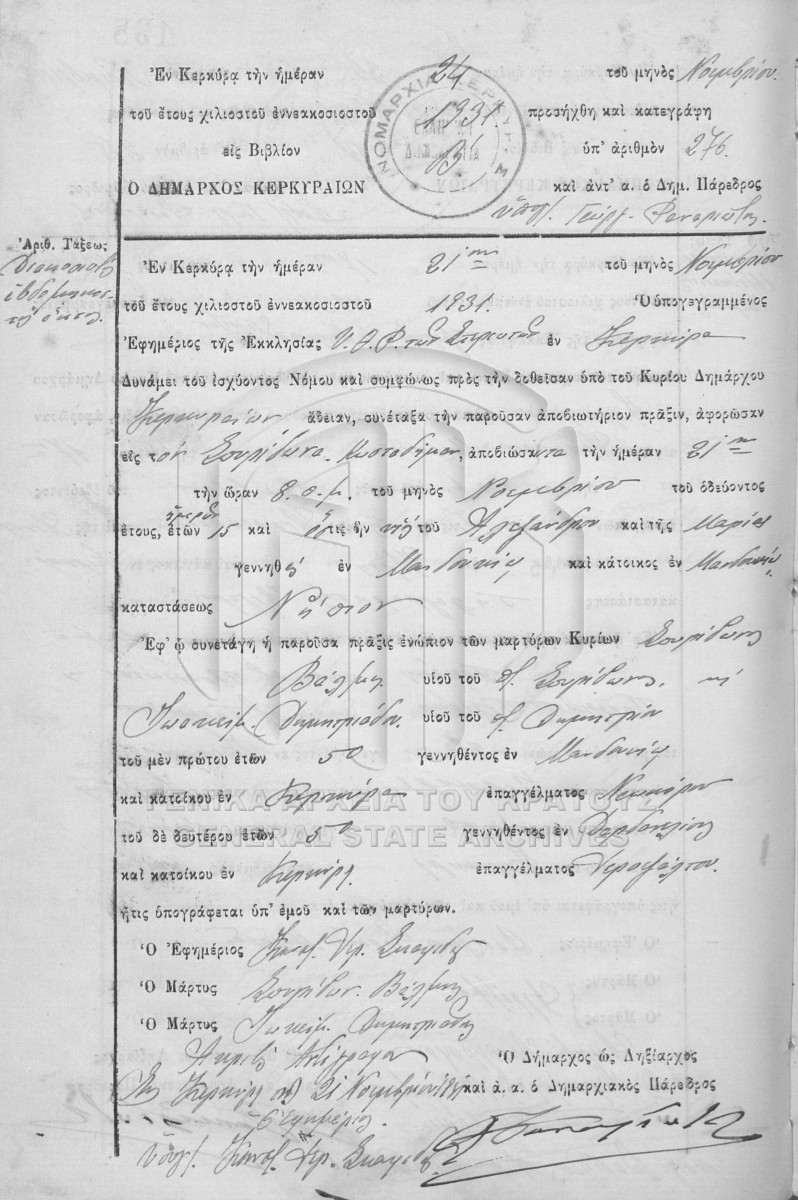 Ἐν Κερκύρᾳ τὴν ἡμέραν 24 τοῦ μηνὸς Νοεμβρίου
τοῦ ἔτους χιλιοστοῦ ἐννεακοσιοστοῦ 1931 προσήχθη καὶ κατεγράφη
εἰς Βιβλίον Β' ὑπ' ἀριθμὸν 276
Ο ΔΗΜΑΡΧΟΣ ΚΕΡΚΥΡΑΙΩΝ καὶ ἀντ' α. ὁ Δημ. Πάρεδρος
ΝΟΜΑΡΧΙΑ
Ἀριθ. Τάξεως
Διακοσιοστ
ἑβδομηκοσ
Ἐν Κερκύρᾳ τὴν ἡμέραν 21ην τοῦ μηνὸς Νοεμβρίου
τοῦ ἔτους χιλιοστοῦ ἐννεακοσιοστοῦ 1931. Ὁ ὑπογεγραμμένος
Ἐφημέριος τῆς Ἐκκλησίας Υ. Θ. τῶν ἐν Κερκύρᾳ
Δυνάμει τοῦ ἰσχύοντος Νόμου καὶ συμφώνως πρὸς τὴν δοθεῖσαν ὑπὸ τοῦ Κυρίου Δημάρχου
Κερκυραίων ἄδειαν, συνέταξα τὴν παροῦσαν ἀποβιωτήριον πρᾶξιν, ἀφορῶσαν
εἰς τὸν Σπυρίδωνα ἀποβιώσαντα τὴν ἡμέραν 21ην
τὴν ὥραν 8 π.μ. τοῦ μηνὸς Νοεμβρίου τοῦ ὁδεύοντος
ἔτους, ἐτῶν ἡμερῶν 15 καὶ ὅστις ἦν υἱὸς τοῦ Ἀλεξάνδρου καὶ τῆς Μαρίας
γεννηθεὶς ἐν Μανδουκίῳ καὶ κάτοικος ἐν Μανδουκίῳ
καταστάσεως Νήπιον
Ἐφ' ᾧ συνετάγη ἡ παροῦσα πρᾶξις ἐνώπιον τῶν μαρτύρων Κυρίων Σπυρίδωνος
Βάλμη υἱοῦ τοῦ Σπυρίδωνος κ
Ἰωακεὶμ Δημητριάδου υἱοῦ τοῦ Δημητρίου
τοῦ μὲν πρώτου ἐτῶν 50 γεννηθέντος ἐν Μανδουκίῳ
καὶ κατοίκου ἐν Κερκύρᾳ ἐπαγγέλματος Νεωκόρου
τοῦ δὲ δευτέρου ἐτῶν 50 γεννηθέντος ἐν Δαρδανελίοις
καὶ κατοίκου ἐν Κερκύρᾳ ἐπαγγέλματος Ἱεροψάλτου
ἥτις ὑπογράφεται ὑπ' ἐμοῦ καὶ τῶν μαρτύρων.
Ὁ Ἐφημέριος
Ὁ Μάρτυς Σπυρίδων Βάλμης
Ὁ Μάρτυς Ἰωακεὶμ Δημητριάδης
Ἀκριβὲς Ἀντίγραφον Ὁ Δήμαρχος ὡς Ληξίαρχος
Ἐν Κερκύρᾳ τῇ 21 Νοεμβρίου 1931 καὶ ἀ. α. ὁ Δημαρχιακὸς Πάρεδρος
Ὁ Ἐφημέριος
ΓΕΝΙΚΑ ΑΡΧΕΙΑ ΤΟΥ ΚΡΑΤΟΥΣ
GENERAL STATE ARCHIVES